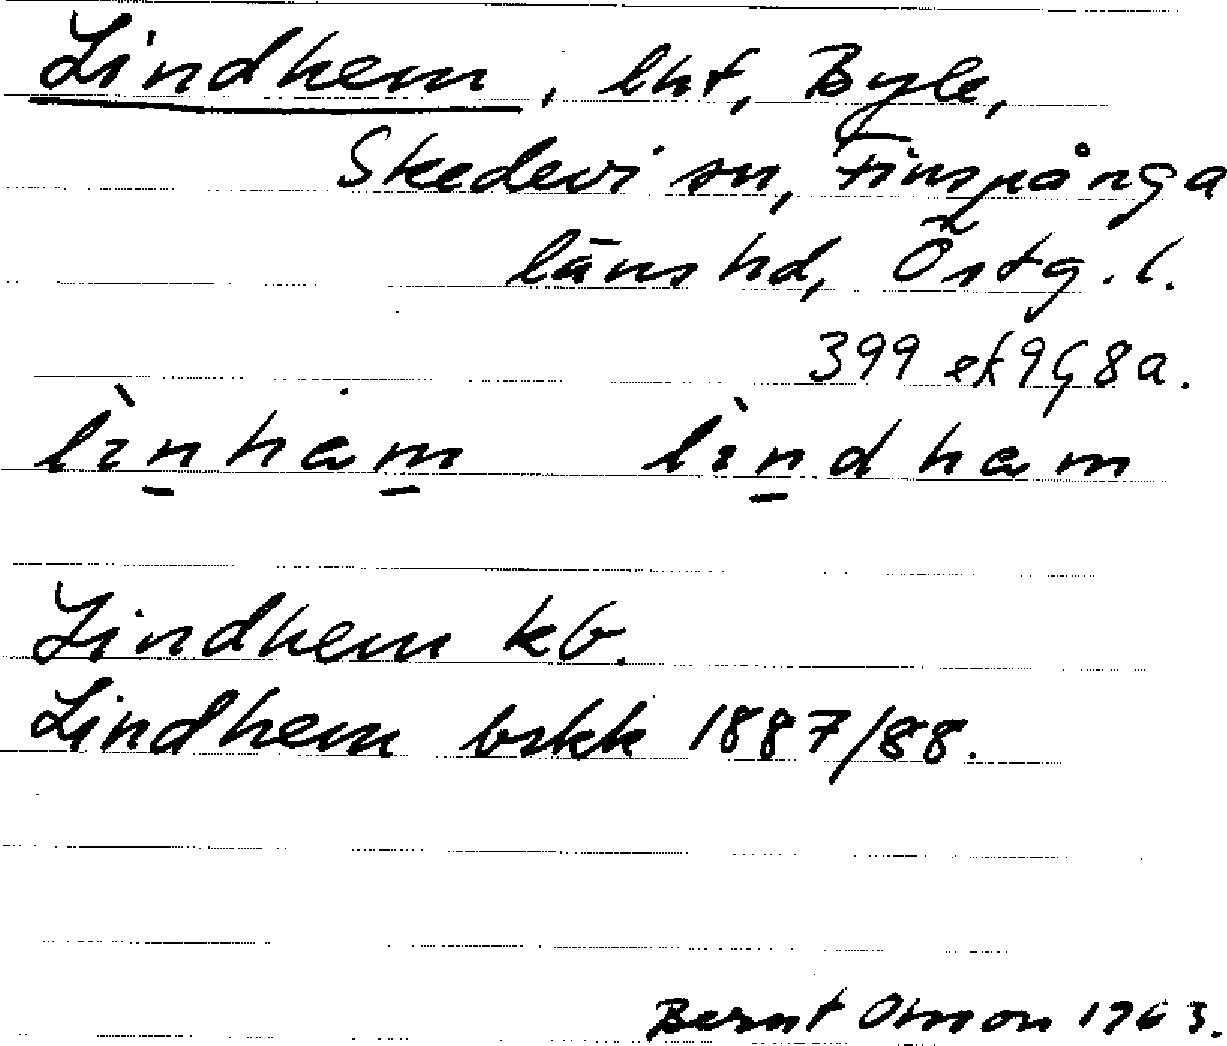 Lindhem, lht, Byle,
Skedevi sn, Finspånga
läns hd, Östg. l.
399 ek 9G 8a.
lìn̲ham̲ lìn̲dham
Lindhem kb.
Lindhem bskk 1887/88.
Bernt Olsson 1963.